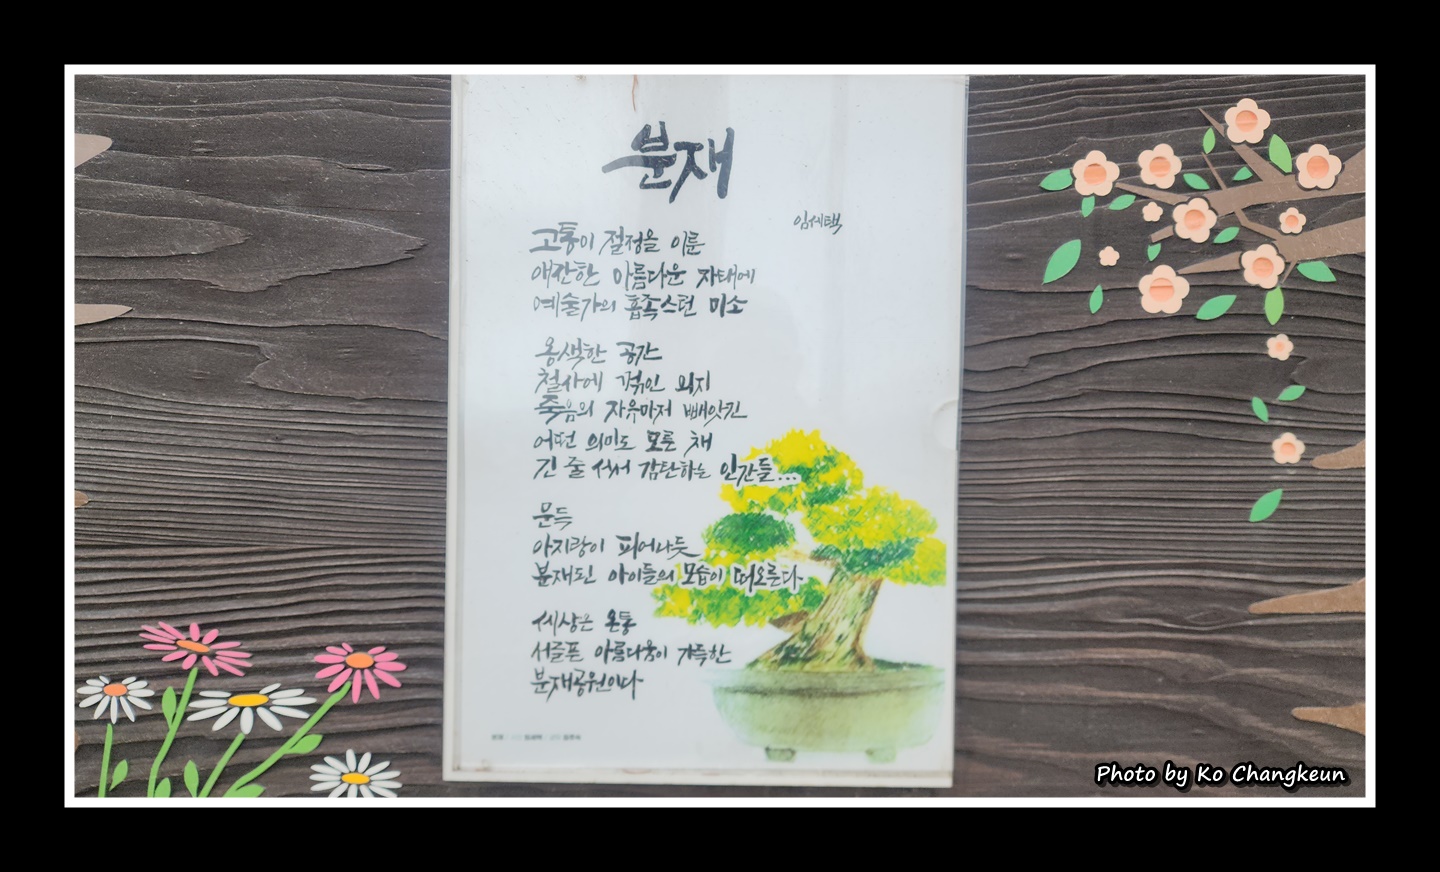 분재
임세택
고통이 절정을 이룬
애잔한 아름다운 자태에
예술가의 흡족스런 미소
옹색한 공간
철사에 꺾인 의지
죽음의 자유마저 빼앗긴
어떤 의미도 모른 채
긴 줄 서서 감탄하는 인간들...
문득
아지랑이 피어나듯
분재된 아이들의 모습이 떠오른다
세상은 온통
서글픈 아름다움이 가득한
분재공원이다
Photo by Ko Changkeun